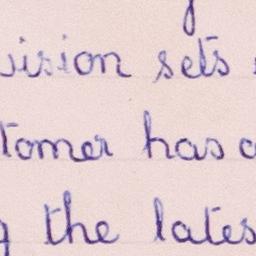 vision sets
tomer has a
the lates